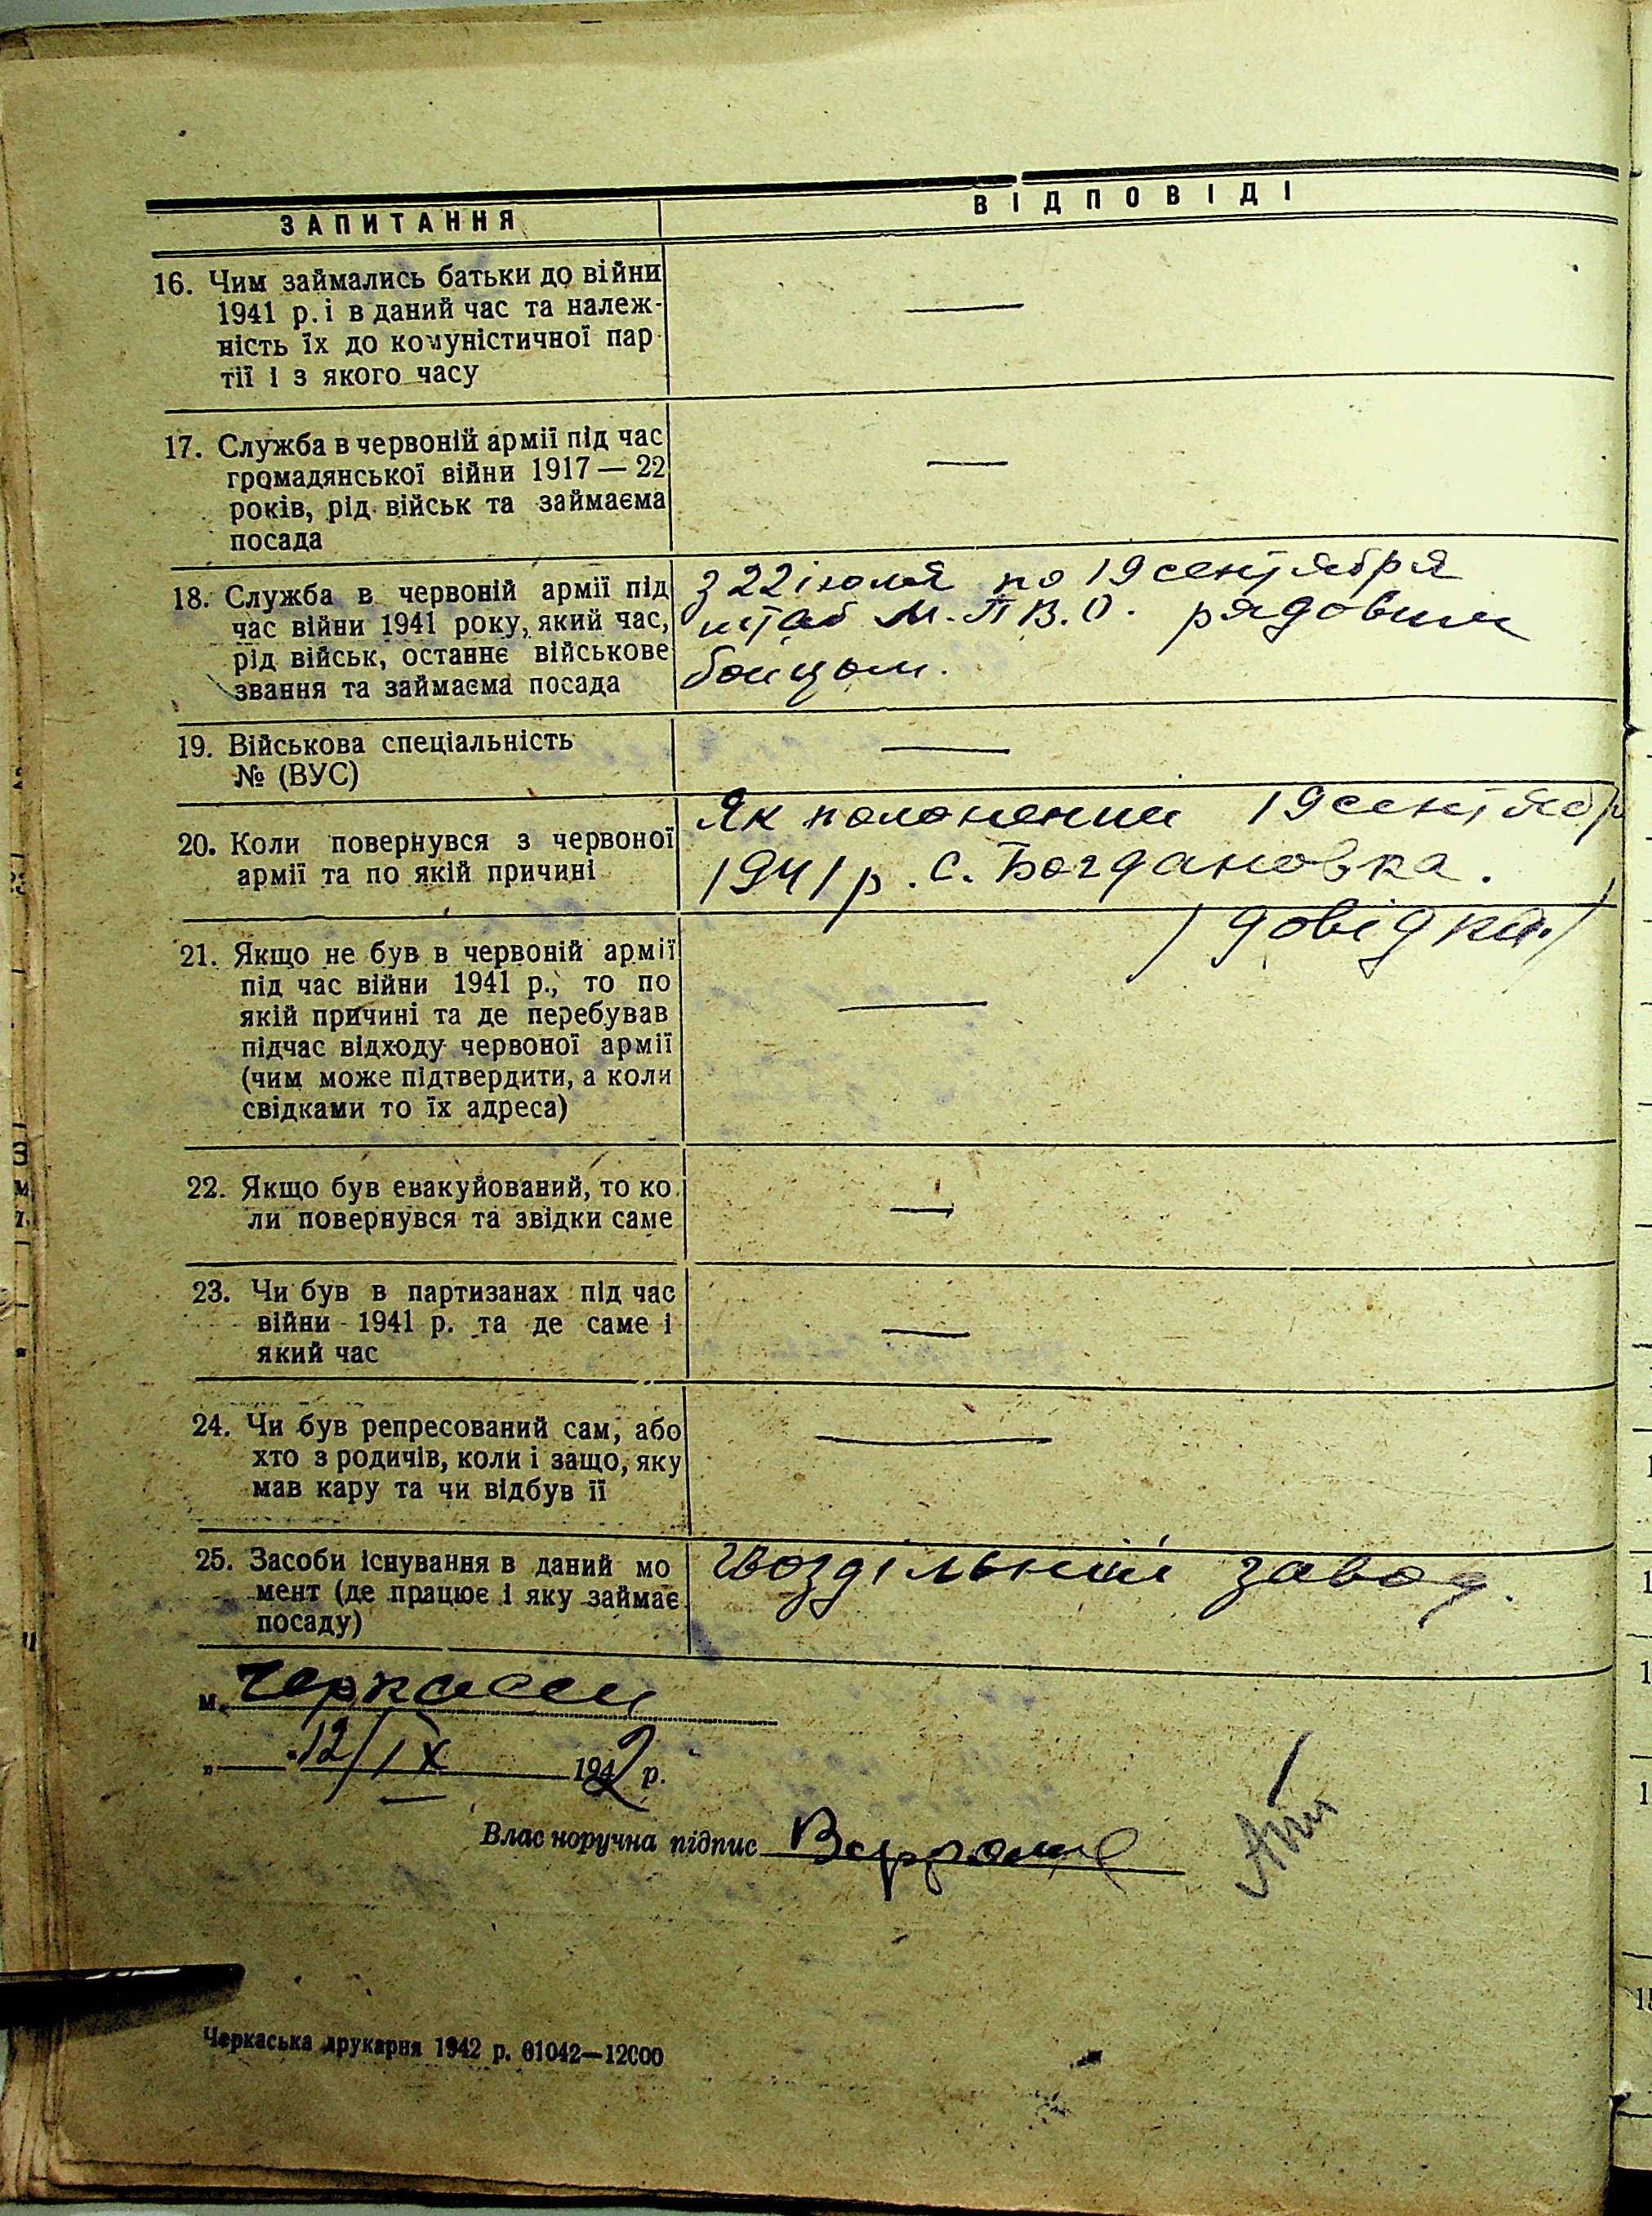 ЗАПИТАННЯ
ВІДПОВІДІ
16. Чим займались батьки до війни
1941 р. і в даний час та належ-
ність їх до комуністичної пар-
тії і з якого часу
—
17. Служба в червоній армії під час
громадянської війни 1917 — 22
років, рід військ та займаєма
посада
—
18. Служба в червоній армії під
час війни 1941 року, який час,
рід військ, останнє військове
звання та займаєма посада
З 22 июля по 19 сентября
штаб М.П.В.О. рядовим
бойцом.
19. Військова спеціальність
№ (ВУС)
—
20. Коли повернувся з червоної
армії та по якій причині
Як полонений 19 сентябр
1941 р. с. Богдановка.
/довідка/
21. Якщо не був в червоній армії
під час війни 1941 р., то по
якій причині та де перебував
підчас відходу червоної армії
(чим може підтвердити, а коли
свідками то їх адреса)
—
22. Якщо був евакуйований, то ко-
ли повернувся та звідки саме
—
23. Чи був в партизанах під час
війни 1941 р. та де саме і
який час
—
24. Чи був репресований сам, або
хто з родичів, коли і защо, яку
мав кару та чи відбув її
—
25. Засоби існування в даний мо
мент (де працює і яку займає
посаду)
Гвоздільний завод.
м. Черкассы
„ 12/IX 1942 р.
Власноручна підпис
Черкаська друкарня 1942 р. 01042—12000